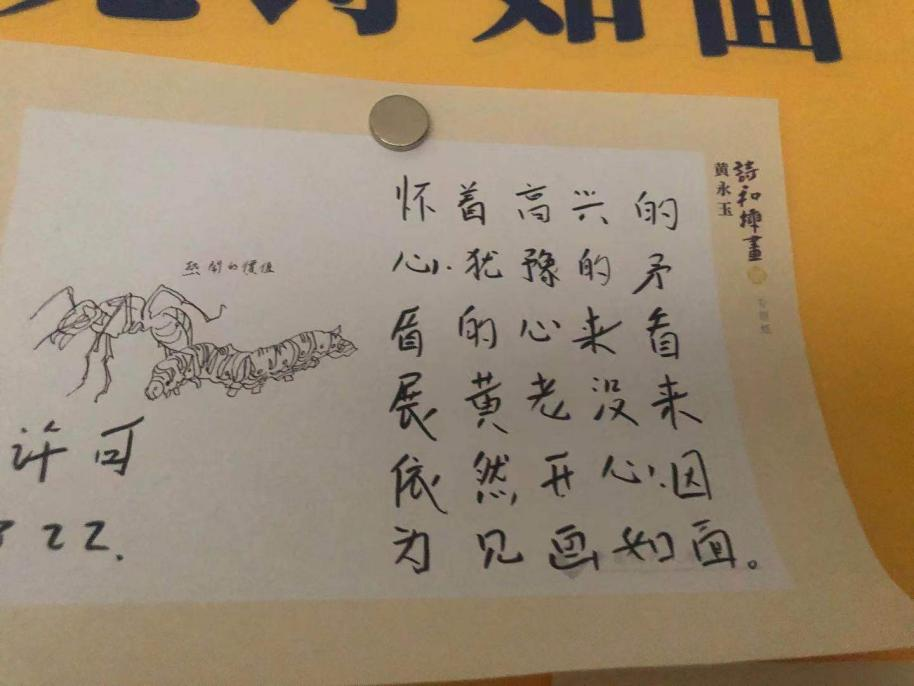 如面
詩和插畫
黄永玉
的價值
怀着高兴的
心.犹豫的矛
盾的心来看
展黄老没来
依然开心.因
为见画如面。
许可
22.